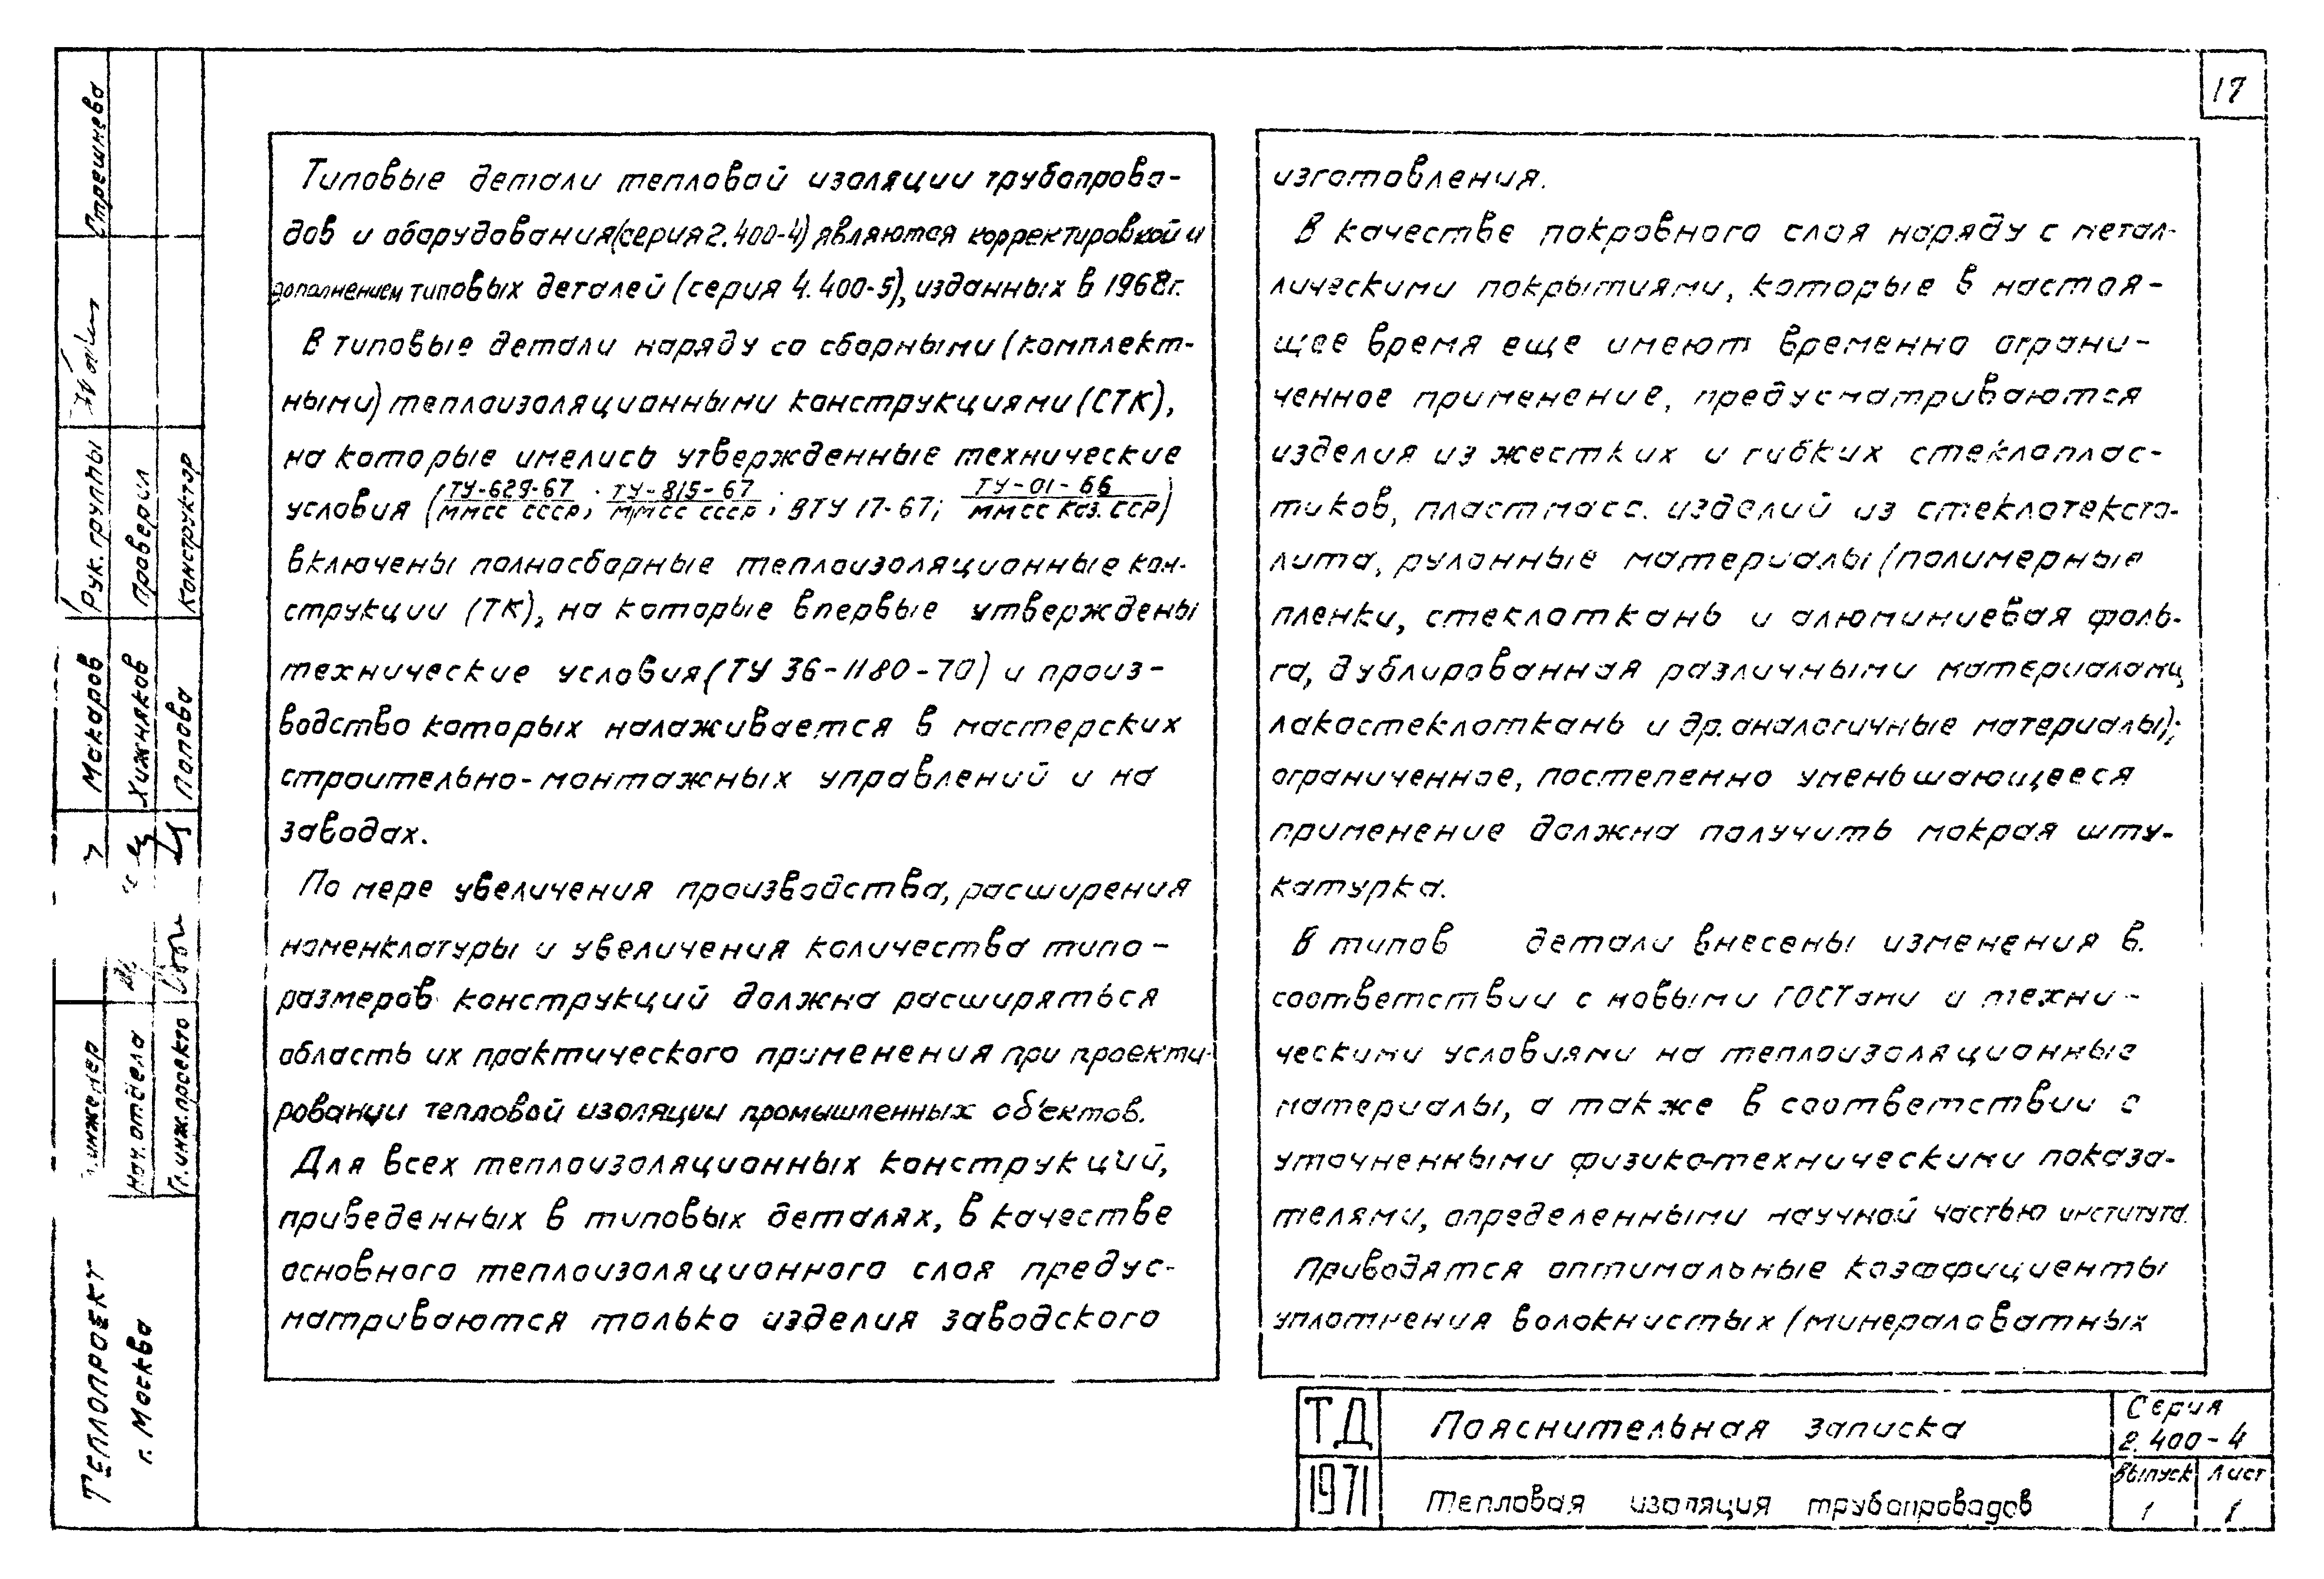 17
Типовые детали тепловой изоляции трубопрово-
дов и оборудования (серия 2.400-4) являются корректировкой и
дополнением типовых деталей (серия 4.400-5), изданных в 1968г.
В типовые детали наряду со сборными (комплект-
ными) теплоизоляционными конструкциями (СТК),
на которые имелись утвержденные технические
условия (ТУ-629-67 / ММСС СССР; ТУ-815-67 / ММСС СССР; ВТУ 17-67; ТУ-01-66 / ММСС Каз.ССР)
включены полносборные теплоизоляционные кон-
струкции (ТК), на которые впервые утверждены
технические условия (ТУ 36-1180-70) и произ-
водство которых налаживается в мастерских
строительно-монтажных управлений и на
заводах.
По мере увеличения производства, расширения
номенклатуры и увеличения количества типо-
размеров конструкций должна расширяться
область их практического применения при проекти-
ровании тепловой изоляции промышленных объектов.
Для всех теплоизоляционных конструкций,
приведенных в типовых деталях, в качестве
основного теплоизоляционного слоя предус-
матриваются только изделия заводского
изготовления.
В качестве покровного слоя наряду с метал-
лическими покрытиями, которые в настоя-
щее время еще имеют временно ограни-
ченное применение, предусматриваются
изделия из жестких и гибких стеклоплас-
тиков, пластмасс. изделий из стеклотексто-
лита, рулонные материалы (полимерные
пленки, стеклоткань и алюминиевая фоль-
га, дублированная различными материалами,
лакостеклоткань и др. аналогичные материалы);
ограниченное, постепенно уменьшающееся
применение должна получить мокрая шту-
катурка.
В типов детали внесены изменения в
соответствии с новыми ГОСТами и техни-
ческими условиями на теплоизоляционные
материалы, а также в соответствии с
уточненными физико-техническими показа-
телями, определенными научной частью института.
Приводятся оптимальные коэффициенты
уплотнения волокнистых (минераловатных
ТД
Пояснительная записка
Серия
2.400-4
1971
Тепловая изоляция трубопроводов
Выпуск Лист
1 1
Стрешнева
Рук. группы
Проверил
Конструктор
Макаров
Хижняков
Попова
инженер
Нач. отдела
Гл. инж. проекта
Теплопроект
г. Москва